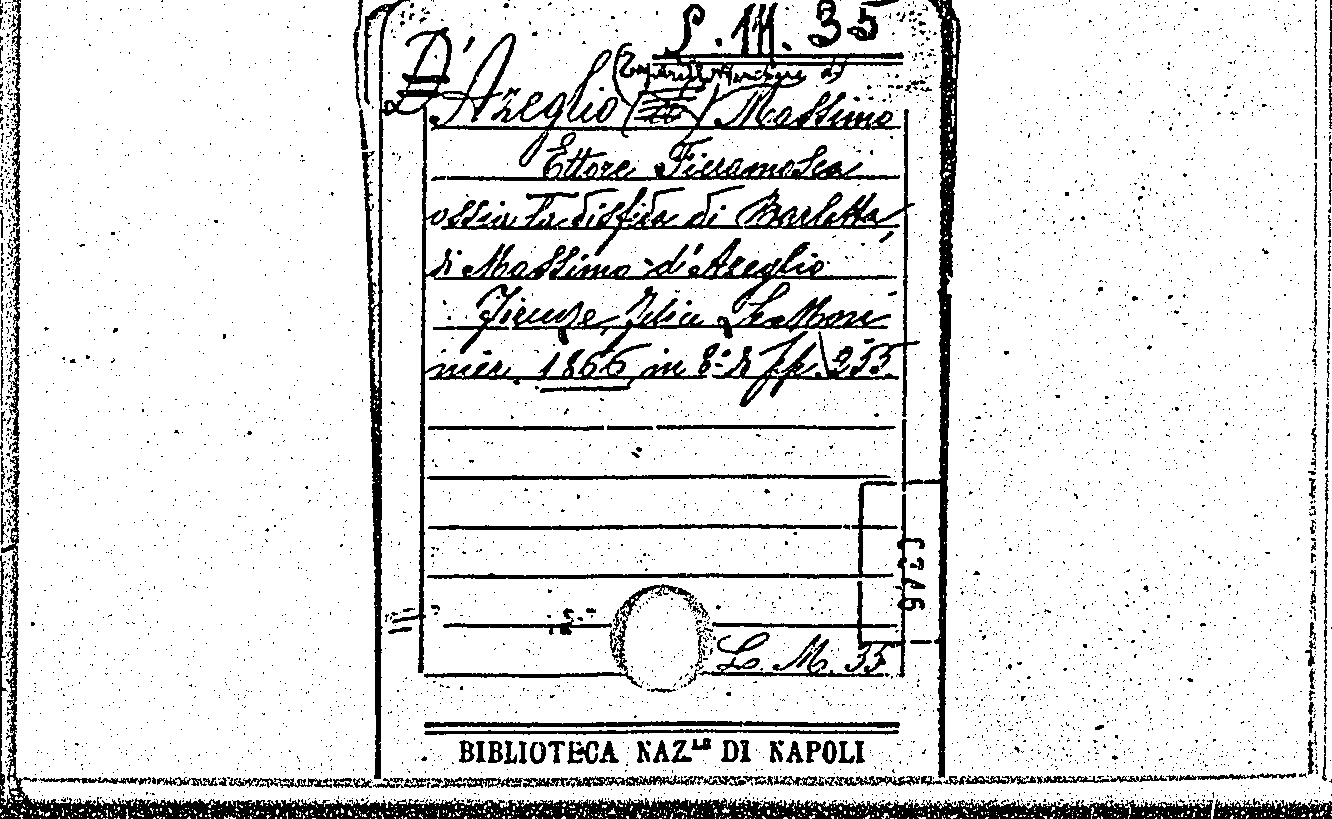 L. M. 35
D'
(Tapparelli Marchese d')
d'Azeglio ( ) Massimo
Ettore Fieramosca
ossia La disfida di Barletta
di Massimo d'Azeglio
Firenze, Felice Le Mon
nier. 1866 in 8° di pp. 255
L. M. 35
BIBLIOTECA NAZ.LE DI NAPOLI